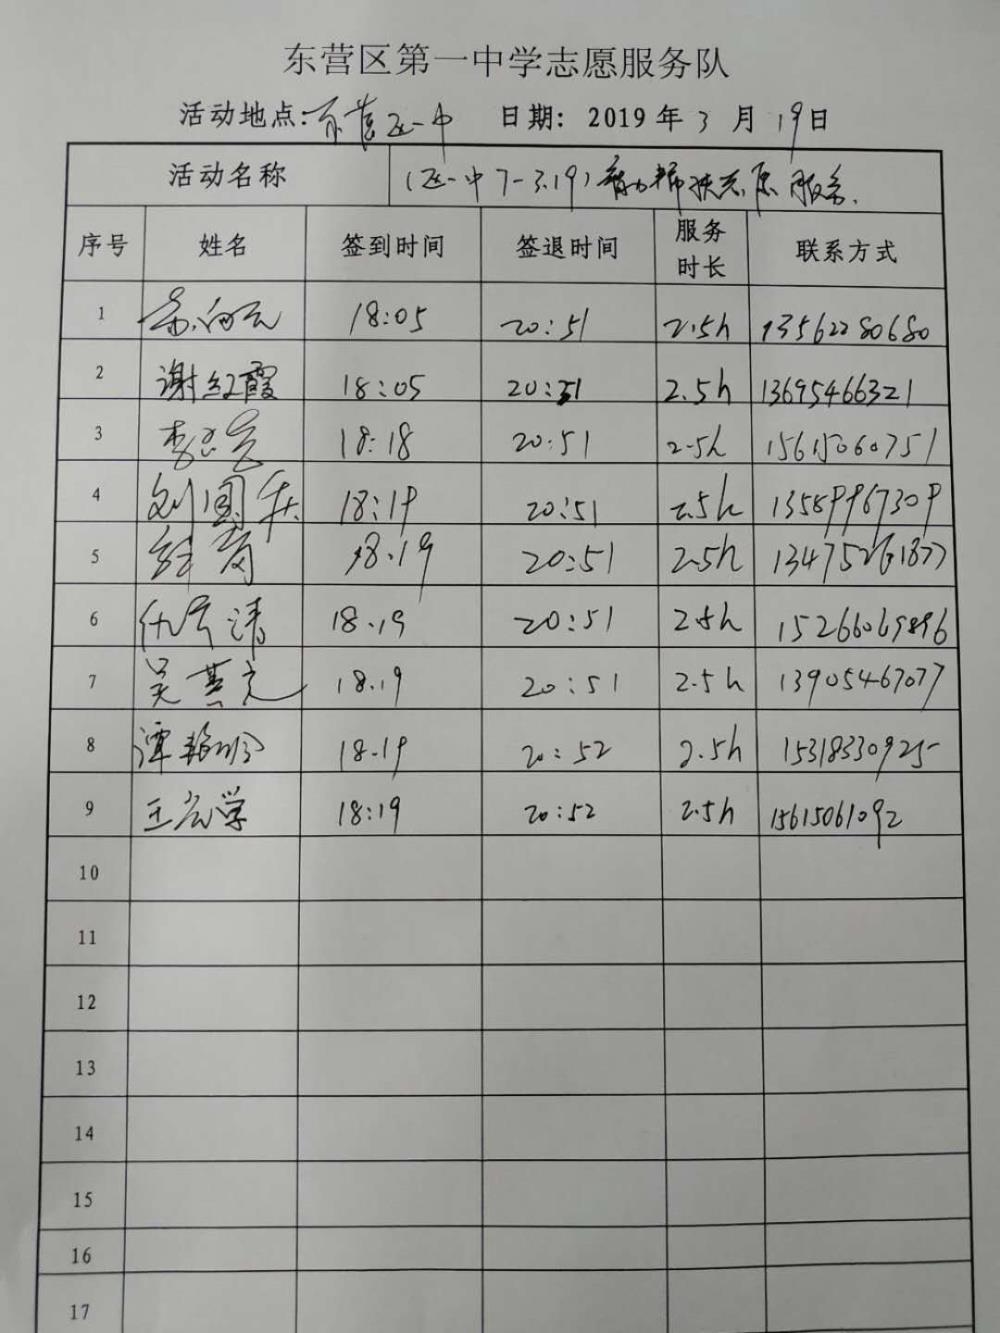 东营区第一中学志愿服务队
活动地点:东营区一中 日期: 2019年3月19日
活动名称 (区一中7-3.19) 志愿服务.
序号 姓名 签到时间 签退时间 服务时长 联系方式
1 18:05 20:51 2.5h 13562280680
2 谢红霞 18:05 20:51 2.5h 13695466321
3 李 18:18 20:51 2.5h 15615060751
4 刘国庆 18:19 20:51 2.5h 13589967309
5 18.19 20:51 2.5h
6 18.19 20:51 2.5h 15266069896
7 吴其亮 18.19 20:51 2.5h 13905467077
8 谭 18.19 20:52 2.5h 15318330925
9 王宏学 18:19 20:52 2.5h 15615061092
10
11
12
13
14
15
16
17